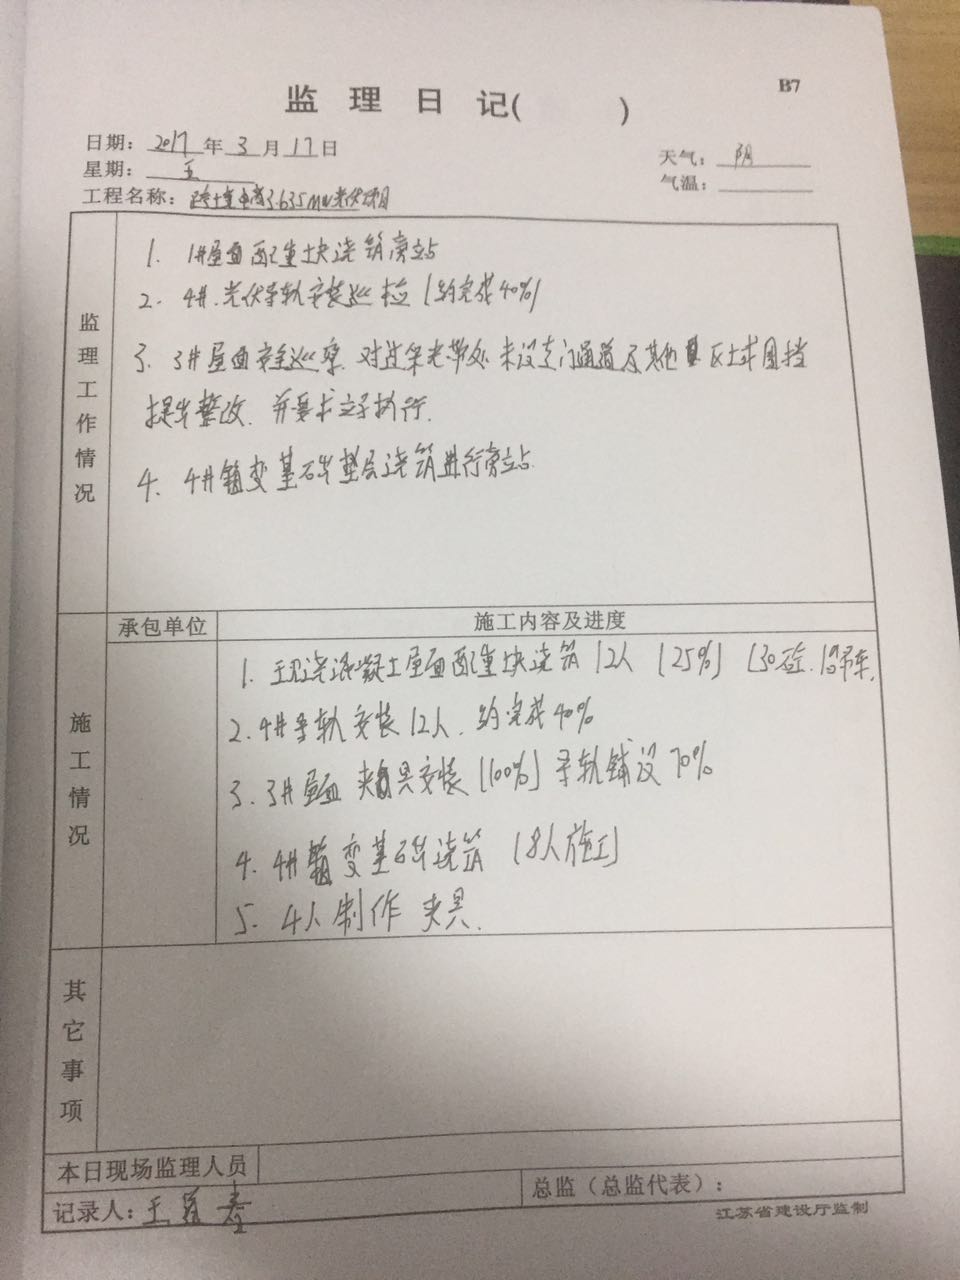 B7
监 理 日 记( )
日期: 2017 年 3 月 17 日
天气: 阴
星期: 五
气温:
工程名称: 3.635MW光伏项目
监理工作情况
1. 1#屋面配重块浇筑旁站
2. 4#.光伏导轨安装巡检(约完成40%)
3. 3#屋面安全巡察.对过采光带处未设专门通道及其他 区土求围挡
提出整改.并要求立子执行.
4. 4#箱变基础垫层浇筑进行旁站.
承包单位
施工内容及进度
施工情况
1. 现浇混凝土屋面配重块浇筑12人(25%)(30砼.1吊车.
2. 4#导轨安装12人.约完成40%
3. 3#屋面夹具安装(100%)导轨铺设70%
4. 4#箱变基础浇筑(8人施工)
5. 4人制作夹具.
其它事项
本日现场监理人员
记录人: 王
总监(总监代表):
江苏省建设厅监制